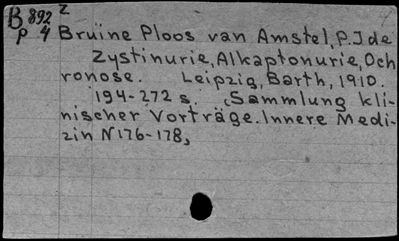 B 892 z
p 4 Bruine Ploos van Amstel, P.J de
Zystinurie, Alkaptonurie, Och
ronose. Leipzig, Barth, 1910.
194-272 s. (Sammlung kli-
nischer Vorträge. Innere Medi-
zin N176-178,